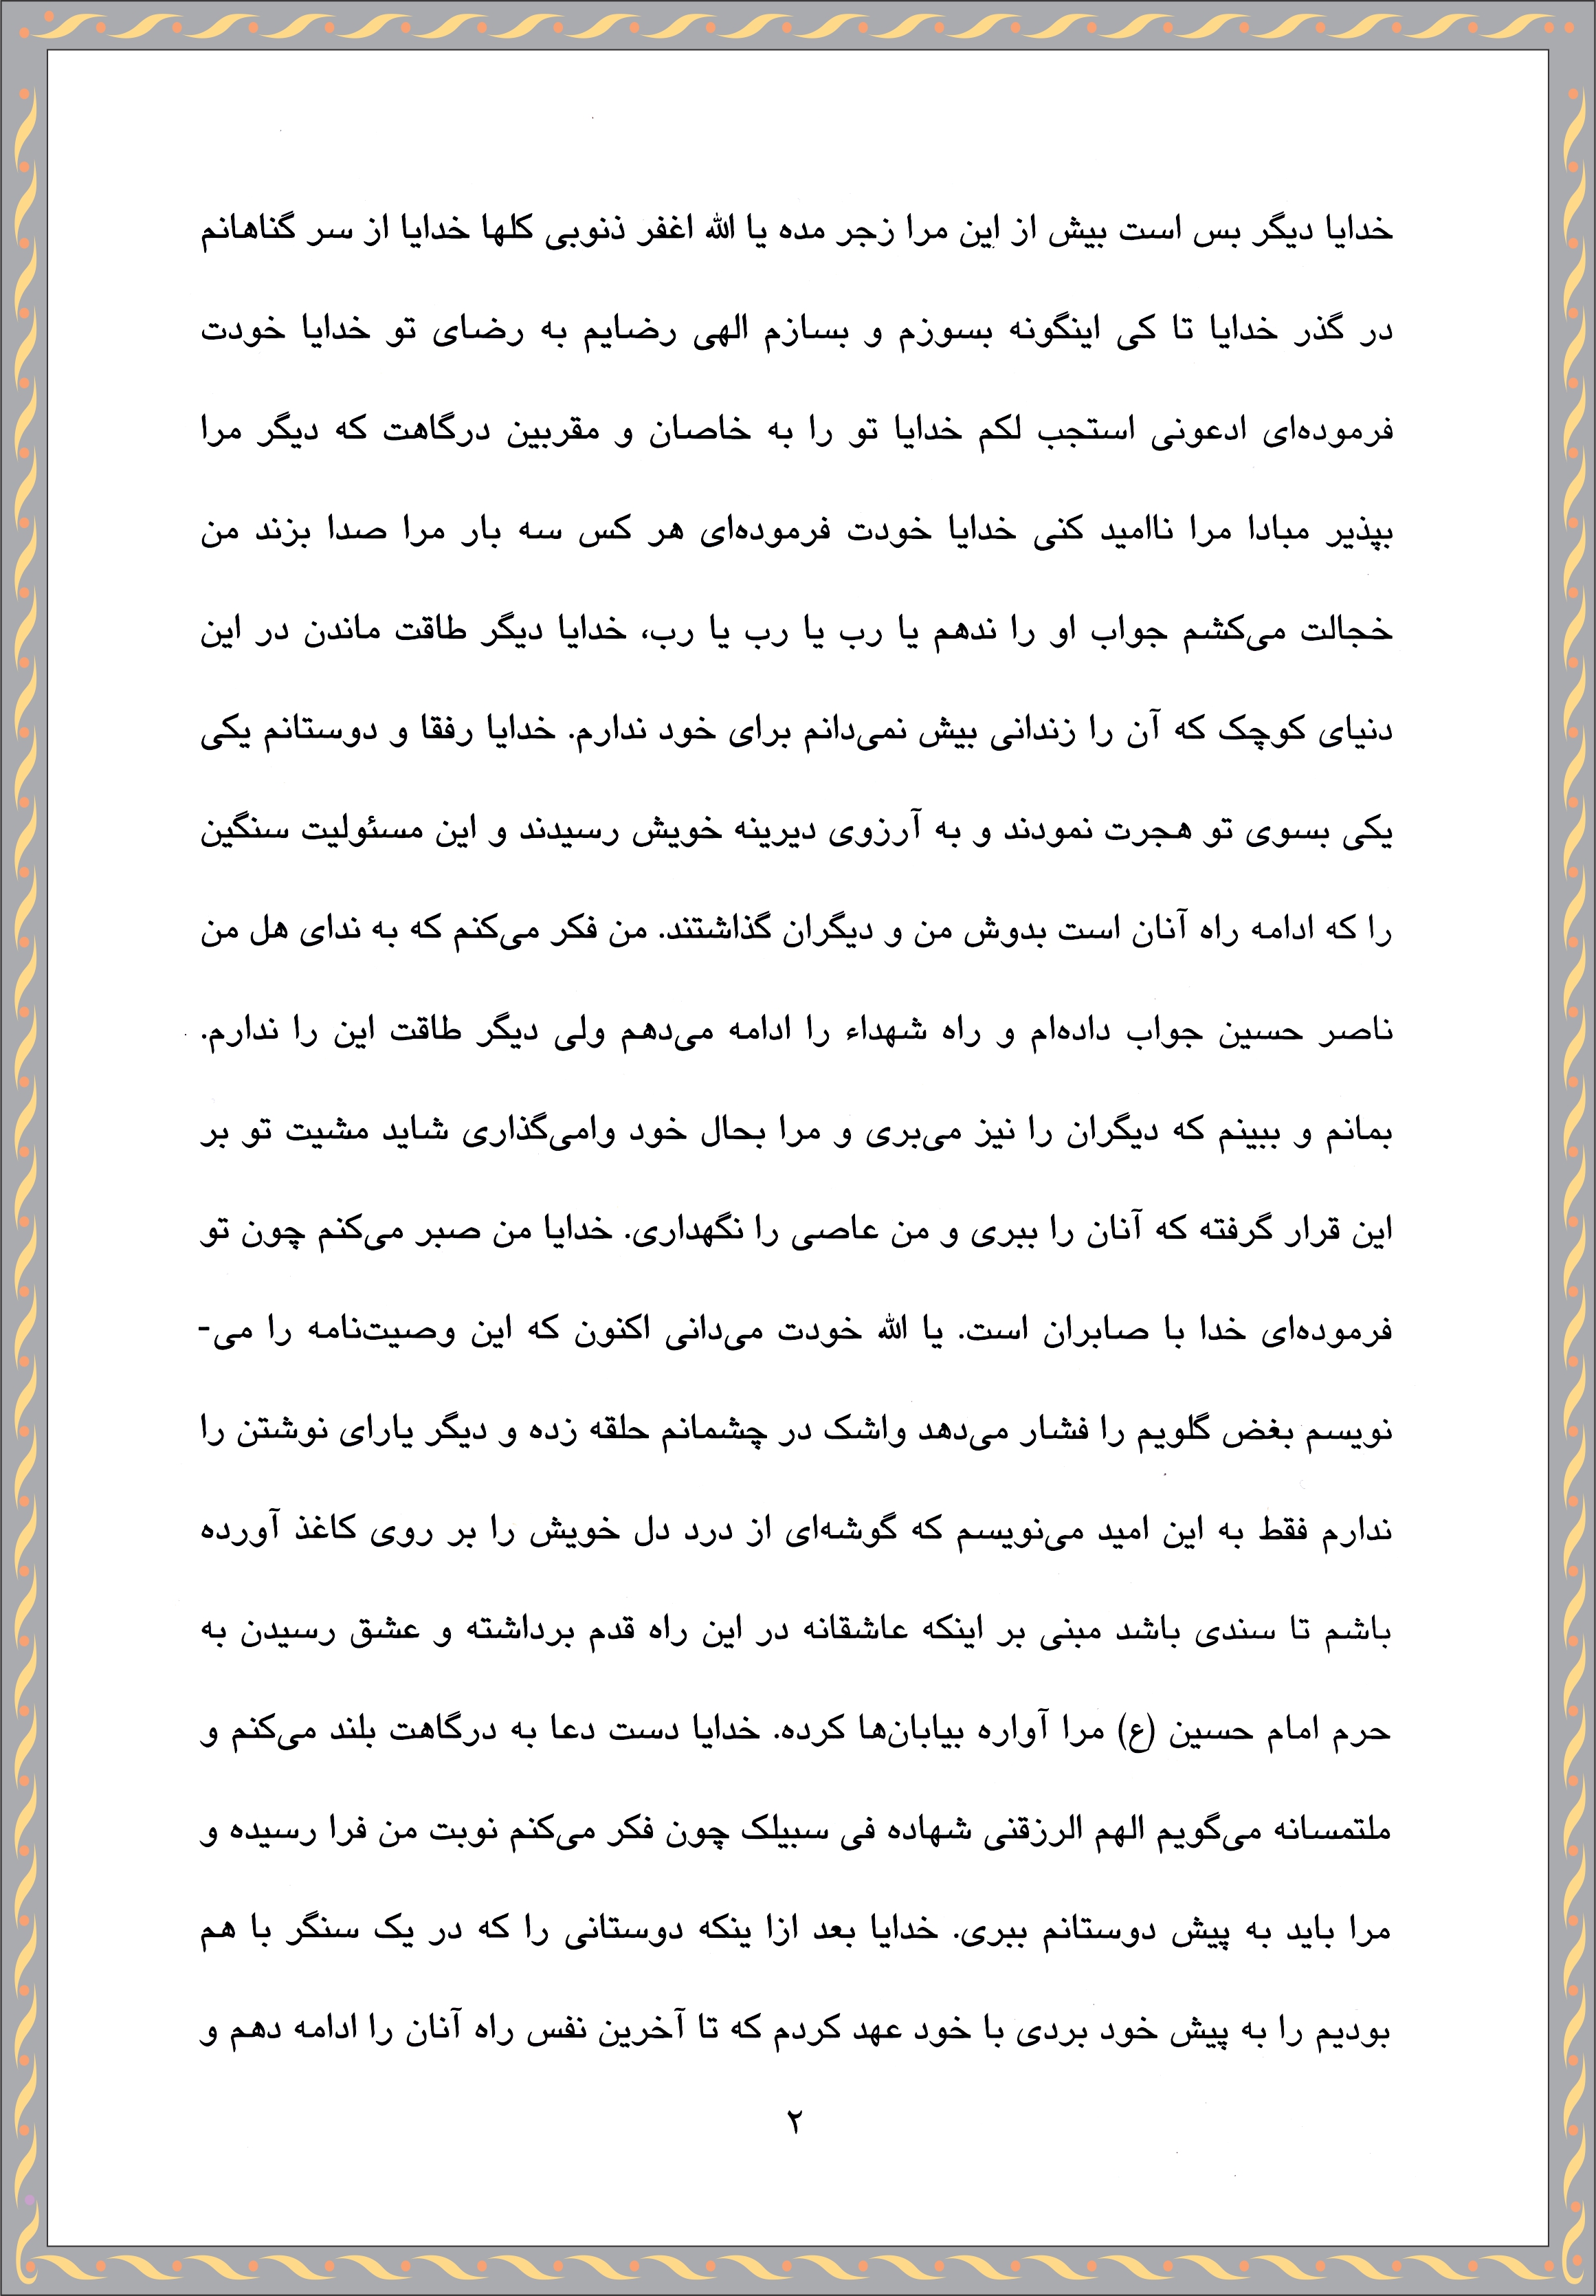 خدایا دیگر بس است بیش از این مرا زجر مده یا الله اغفر ذنوبی کلها خدایا از سر گناهانم
در گذر خدایا تا کی اینگونه بسوزم و بسازم الهی رضایم به رضای تو خدایا خودت
فرموده‌ای ادعونی استجب لکم خدایا تو را به خاصان و مقربین درگاهت که دیگر مرا
بپذیر مبادا مرا ناامید کنی خدایا خودت فرموده‌ای هر کس سه بار مرا صدا بزند من
خجالت می‌کشم جواب او را ندهم یا رب یا رب یا رب، خدایا دیگر طاقت ماندن در این
دنیای کوچک که آن را زندانی بیش نمی‌دانم برای خود ندارم. خدایا رفقا و دوستانم یکی
یکی بسوی تو هجرت نمودند و به آرزوی دیرینه خویش رسیدند و این مسئولیت سنگین
را که ادامه راه آنان است بدوش من و دیگران گذاشتند. من فکر می‌کنم که به ندای هل من
ناصر حسین جواب داده‌ام و راه شهداء را ادامه می‌دهم ولی دیگر طاقت این را ندارم.
بمانم و ببینم که دیگران را نیز می‌بری و مرا بحال خود وامی‌گذاری شاید مشیت تو بر
این قرار گرفته که آنان را ببری و من عاصی را نگهداری. خدایا من صبر می‌کنم چون تو
فرموده‌ای خدا با صابران است. یا الله خودت می‌دانی اکنون که این وصیت‌نامه را می-
نویسم بغض گلویم را فشار می‌دهد واشک در چشمانم حلقه زده و دیگر یارای نوشتن را
ندارم فقط به این امید می‌نویسم که گوشه‌ای از درد دل خویش را بر روی کاغذ آورده
باشم تا سندی باشد مبنی بر اینکه عاشقانه در این راه قدم برداشته و عشق رسیدن به
حرم امام حسین (ع) مرا آواره بیابان‌ها کرده. خدایا دست دعا به درگاهت بلند می‌کنم و
ملتمسانه می‌گویم الهم الرزقنی شهاده فی سبیلک چون فکر می‌کنم نوبت من فرا رسیده و
مرا باید به پیش دوستانم ببری. خدایا بعد ازا ینکه دوستانی را که در یک سنگر با هم
بودیم را به پیش خود بردی با خود عهد کردم که تا آخرین نفس راه آنان را ادامه دهم و
۲